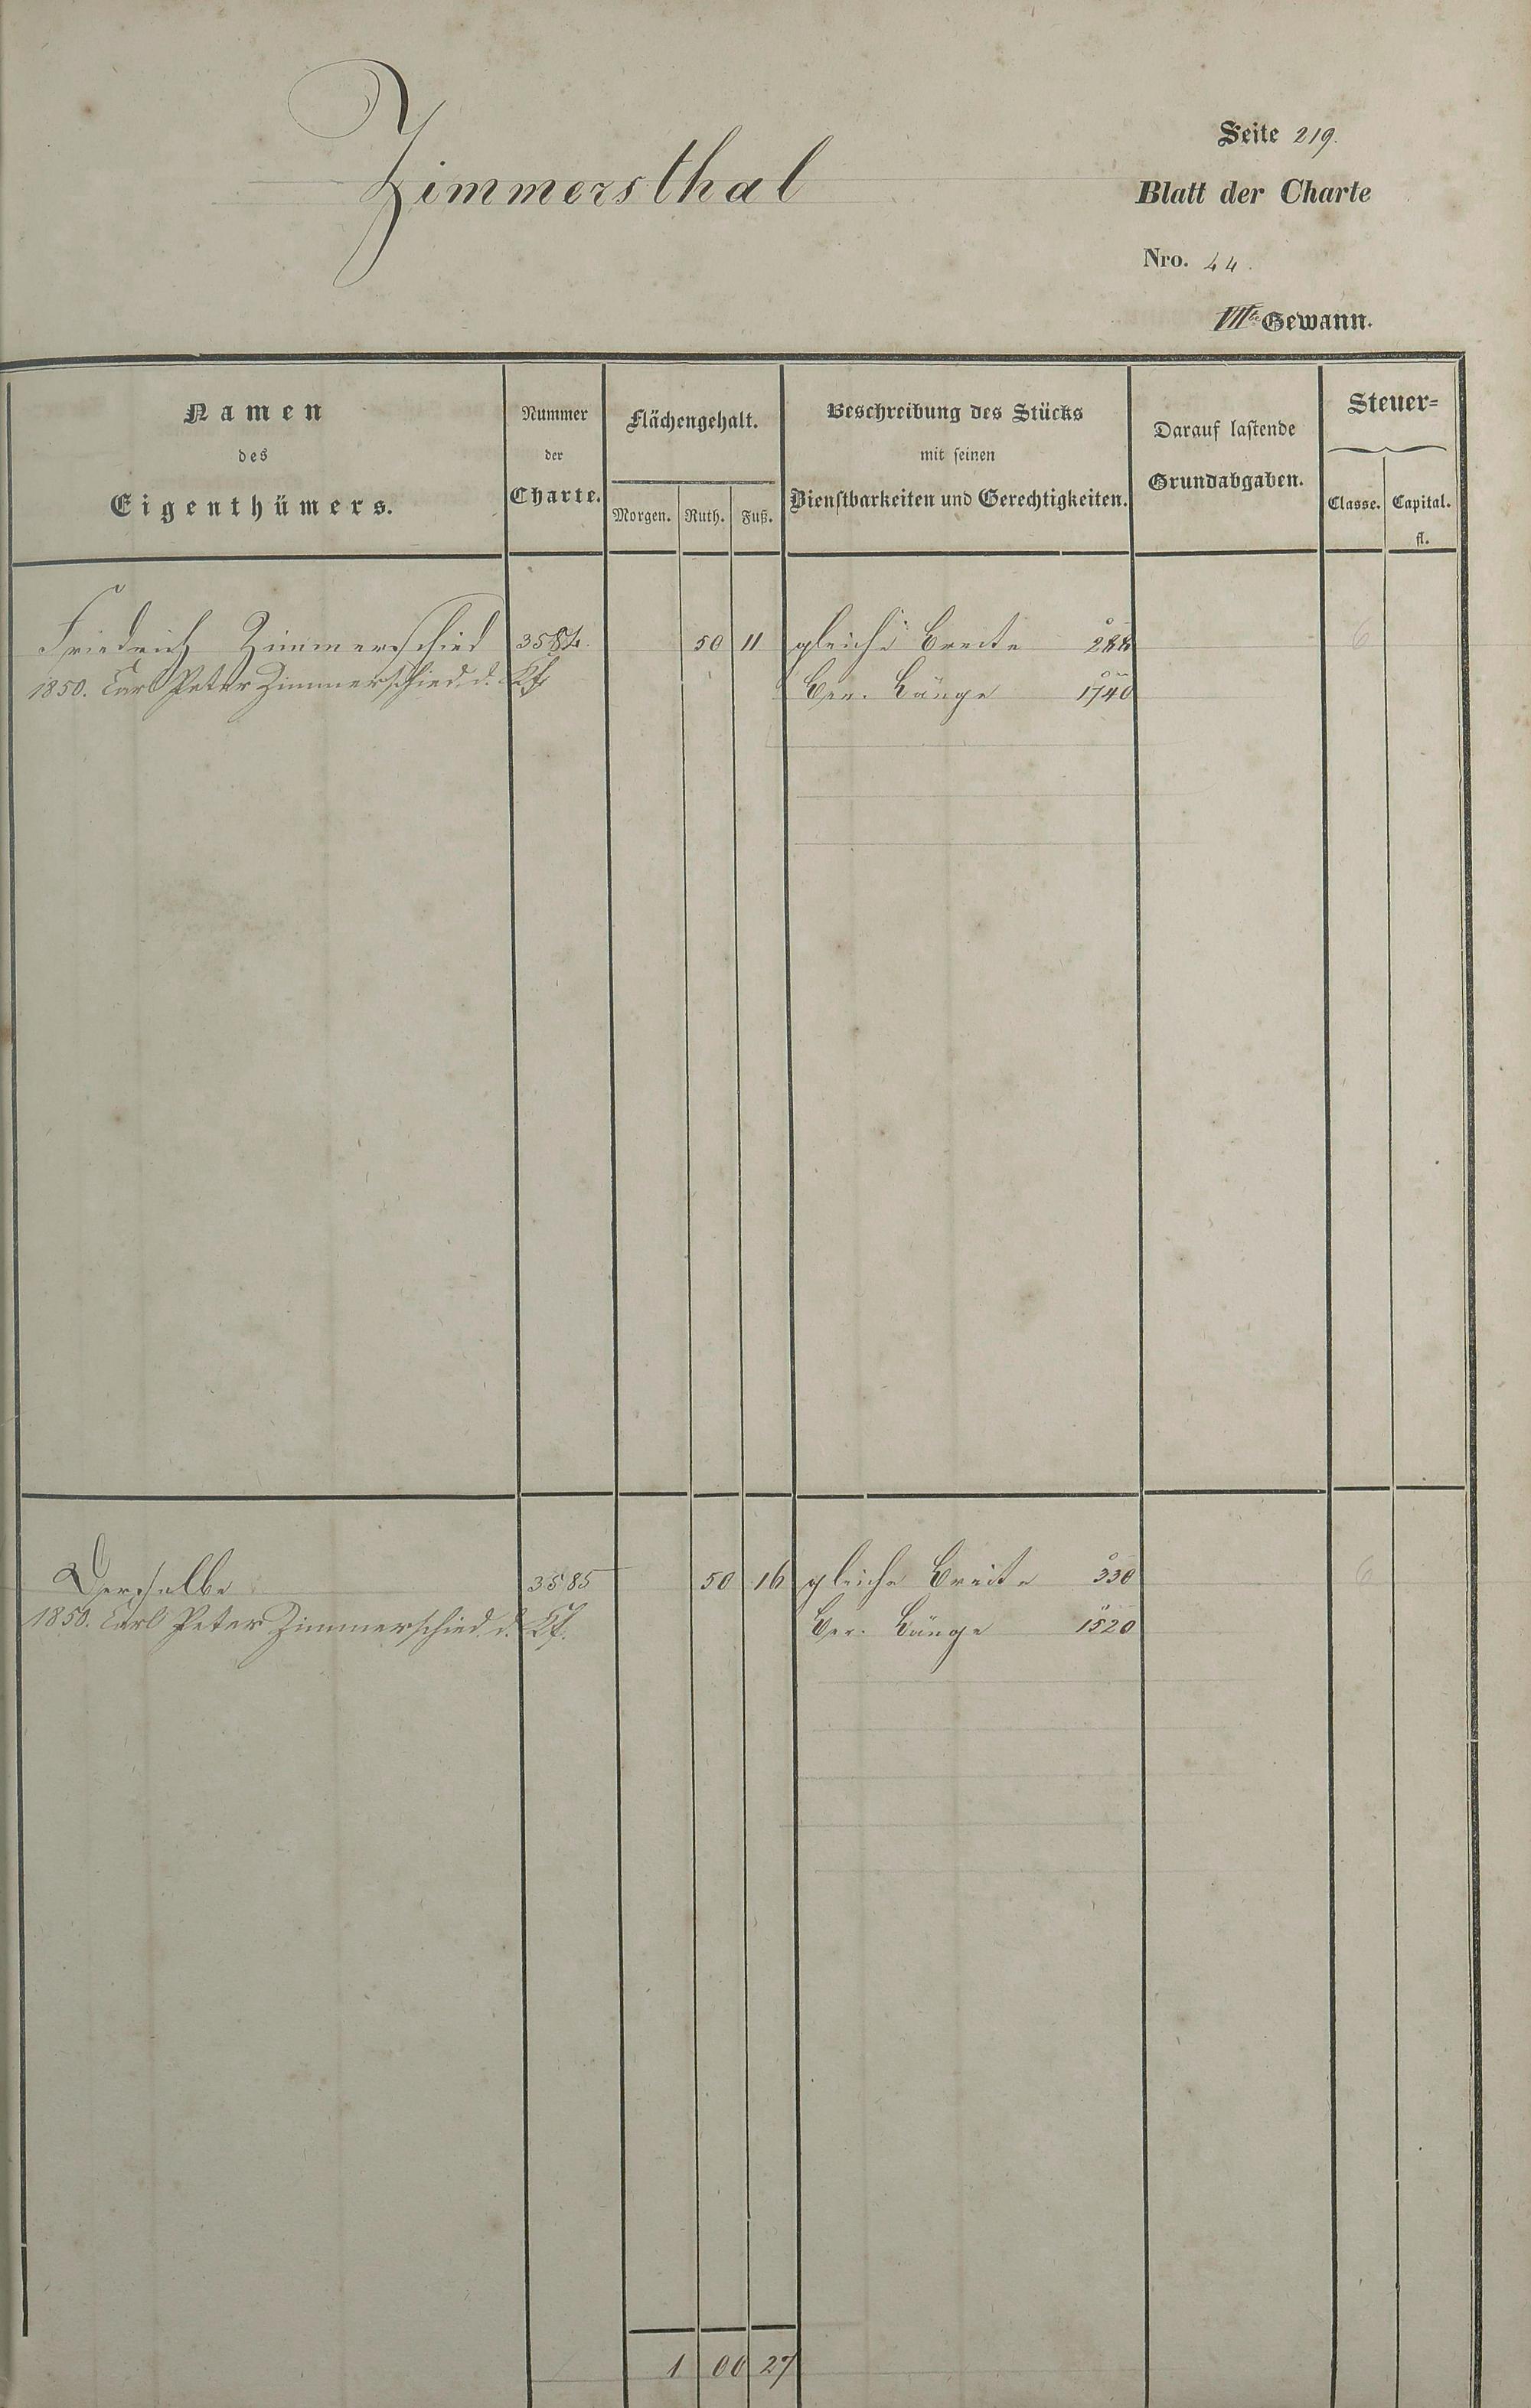 Zimmersthal
Seite 219.
Blatt der Charte
Nro. 44.
VIIte Gewann.
Namen des Eigenthümers.
Nummer der Charte.
Flächengehalt.
Morgen. Ruth. Fuß.
Beschreibung des Stücks mit seinen Dienstbarkeiten und Gerechtigkeiten.
Darauf lastende Grundabgaben.
Steuer=
Classe. Capital. fl.
Friedrich Zimmerschied 3584. 50 11 gleiche Breite 288 6
1850. Carl Peter Zimmerschied d. Kf. Ber. Länge 1740
Derselbe 3585 50 16 gleiche Breite 330 6
1850. Carl Peter Zimmerschied d. Kf. Ber. Länge 1520
1 00 27